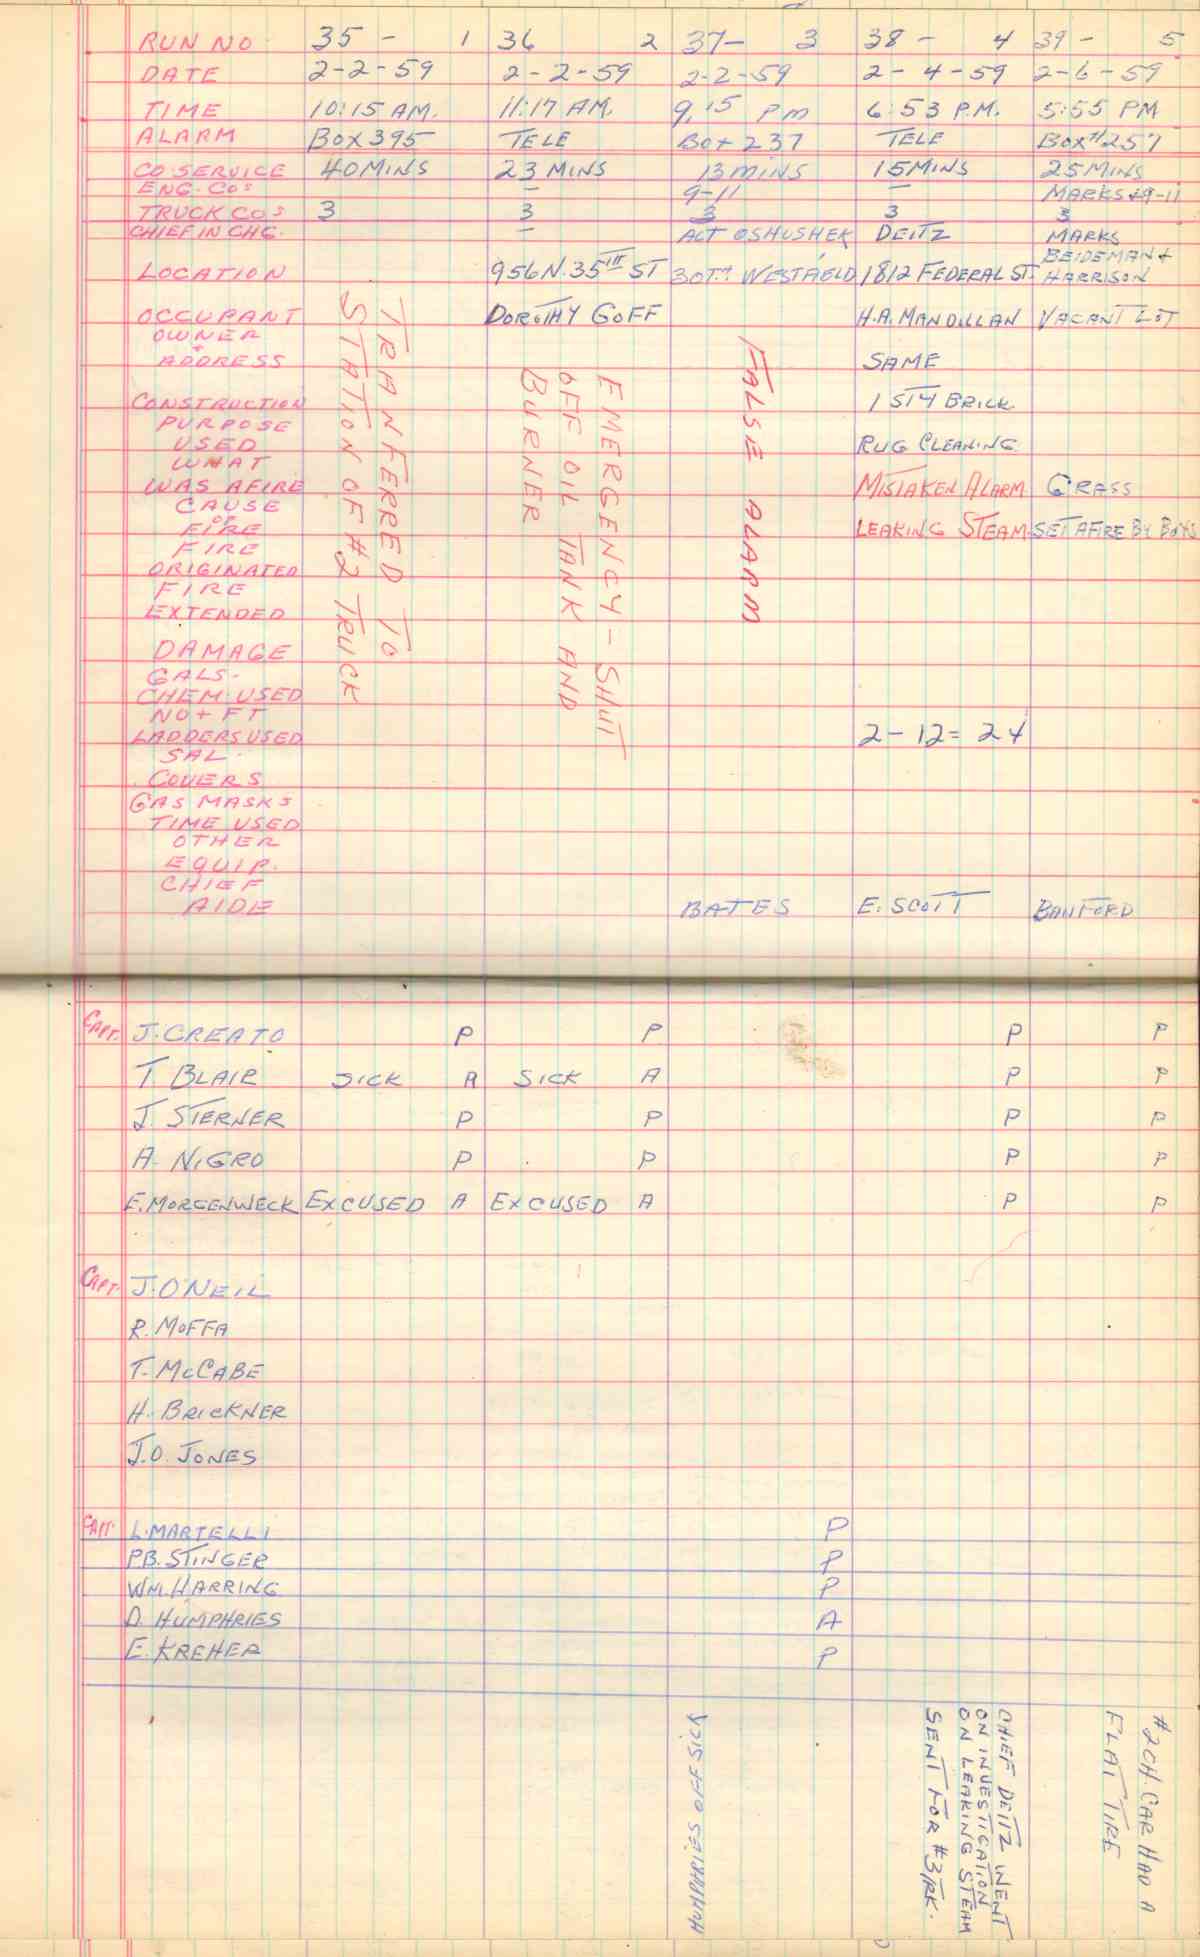 RUN NO 35 - 1 36 2 37- 3 38 - 4 39 - 5
DATE 2-2-59 2-2-59 2-2-59 2-4-59 2-6-59
TIME 10:15 AM. 11:17 AM. 9,15 PM 6:53 P.M. 5:55 PM
ALARM BOX 395 TELE BOX 237 TELE BOX #257
CO SERVICE 40 MINS 23 MINS 13 MINS 15 MINS 25 MINS
ENG. COS — 9-11 — MARKS + 9-11
TRUCK COS 3 3 3 3 3
CHIEF IN CHG. — ACT OSHUSHEK DEITZ MARKS
LOCATION 956 N. 35TH ST 30TH WESTFIELD 1812 FEDERAL ST. BEIDEMAN +
HARRISON
OCCUPANT DOROTHY GOFF H.A. MANDILLAN VACANT LOT
OWNER
+
ADDRESS SAME
CONSTRUCTION 1 STY BRICK
PURPOSE
USED RUG CLEANING
WHAT
WAS AFIRE MISTAKEN ALARM GRASS
CAUSE
OF
FIRE LEAKING STEAM SET AFIRE BY BOYS
FIRE
ORIGINATED
FIRE
EXTENDED
DAMAGE
GALS-
CHEM-USED
NO + FT
LADDERS USED 2-12= 24
SAL-
COVERS
GAS MASKS
TIME USED
OTHER
EQUIP.
CHIEF
AIDE BATES E. SCOTT BANFORD
TRANFERRED TO
STATION OF #2 TRUCK
EMERGENCY - SHUT
OFF OIL TANK AND
BURNER
FALSE ALARM
CAPT. J. CREATO P P P P
T. BLAIR SICK A SICK A P P
J. STERNER P P P P
A. NIGRO P P P P
E. MORGENWECK EXCUSED A EXCUSED A P P
CAPT. J. O'NEIL
R. MOFFA
T. McCABE
H. BRICKNER
J.O. JONES
CAPT. L. MARTELLI P
P.B. STINGER P
WM. HARRING P
D. HUMPHRIES A
E. KREHER P
HUMPHRIES OFF SICK
CHIEF DEITZ WENT
ON INVESTIGATION
ON LEAKING STEAM
SENT FOR #3 TRK.
#2 CH. CAR HAD A
FLAT TIRE